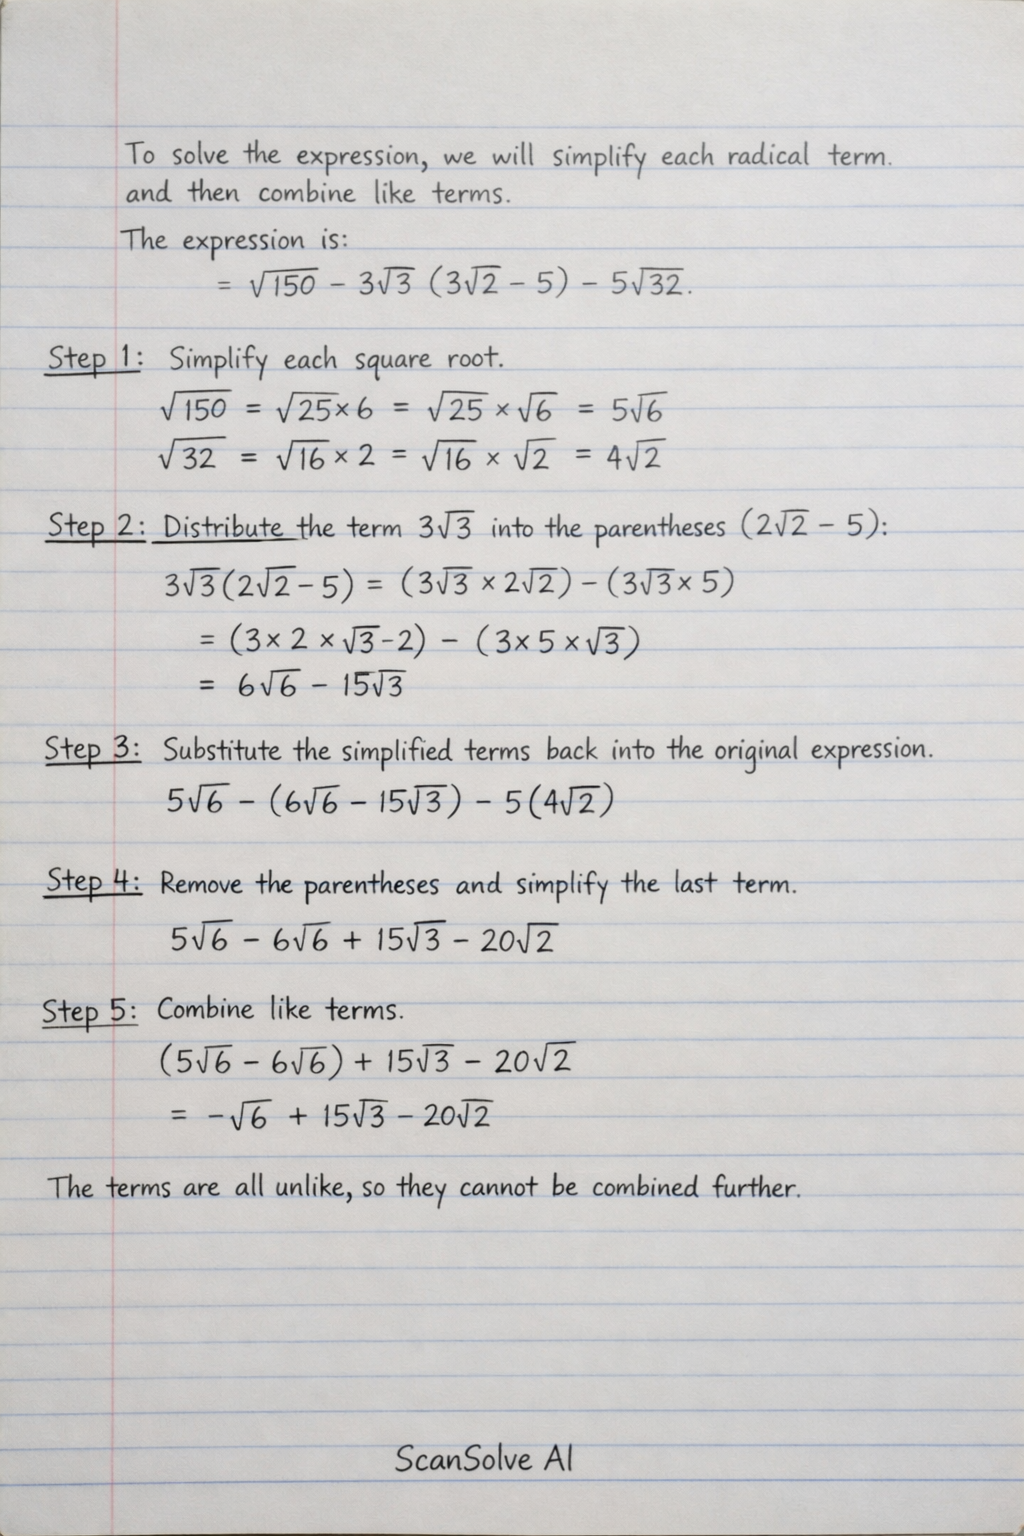 To solve the expression, we will simplify each radical term.
and then combine like terms.
The expression is:
= √150 - 3√3 (3√2 - 5) - 5√32.
Step 1: Simplify each square root.
√150 = √25×6 = √25 × √6 = 5√6
√32 = √16 × 2 = √16 × √2 = 4√2
Step 2: Distribute the term 3√3 into the parentheses (2√2 - 5):
3√3(2√2 - 5) = (3√3 × 2√2) - (3√3 × 5)
= (3 × 2 × √3-2) - (3 × 5 × √3)
= 6√6 - 15√3
Step 3: Substitute the simplified terms back into the original expression.
5√6 - (6√6 - 15√3) - 5(4√2)
Step 4: Remove the parentheses and simplify the last term.
5√6 - 6√6 + 15√3 - 20√2
Step 5: Combine like terms.
(5√6 - 6√6) + 15√3 - 20√2
= -√6 + 15√3 - 20√2
The terms are all unlike, so they cannot be combined further.
ScanSolve AI